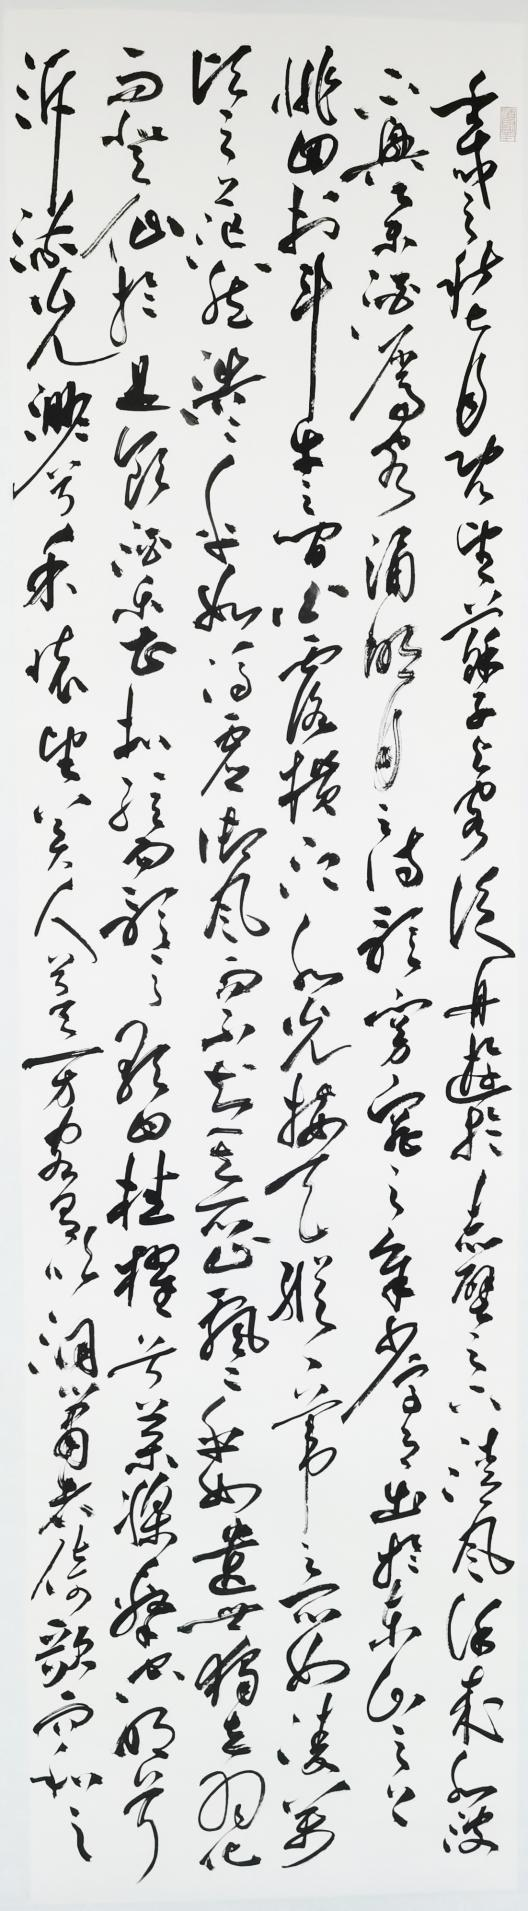 壬戌之秋七月既望蘇子与客泛舟遊於赤壁之下清風徐来水波
不興举酒属客诵明月之诗歌窈窕之章少焉月出於東山之上
徘徊於斗牛之間白露横江水光接天縱一苇之所如凌萬
頃之茫然浩々乎如馮虚御風而不知其所止飄々乎如遺世獨立羽化
而登仙於是飲酒樂甚扣舷而歌之歌曰桂櫂兮蘭槳擊空明兮
泝流光渺兮余懷望美人兮天一方客有吹洞簫者倚歌而和之